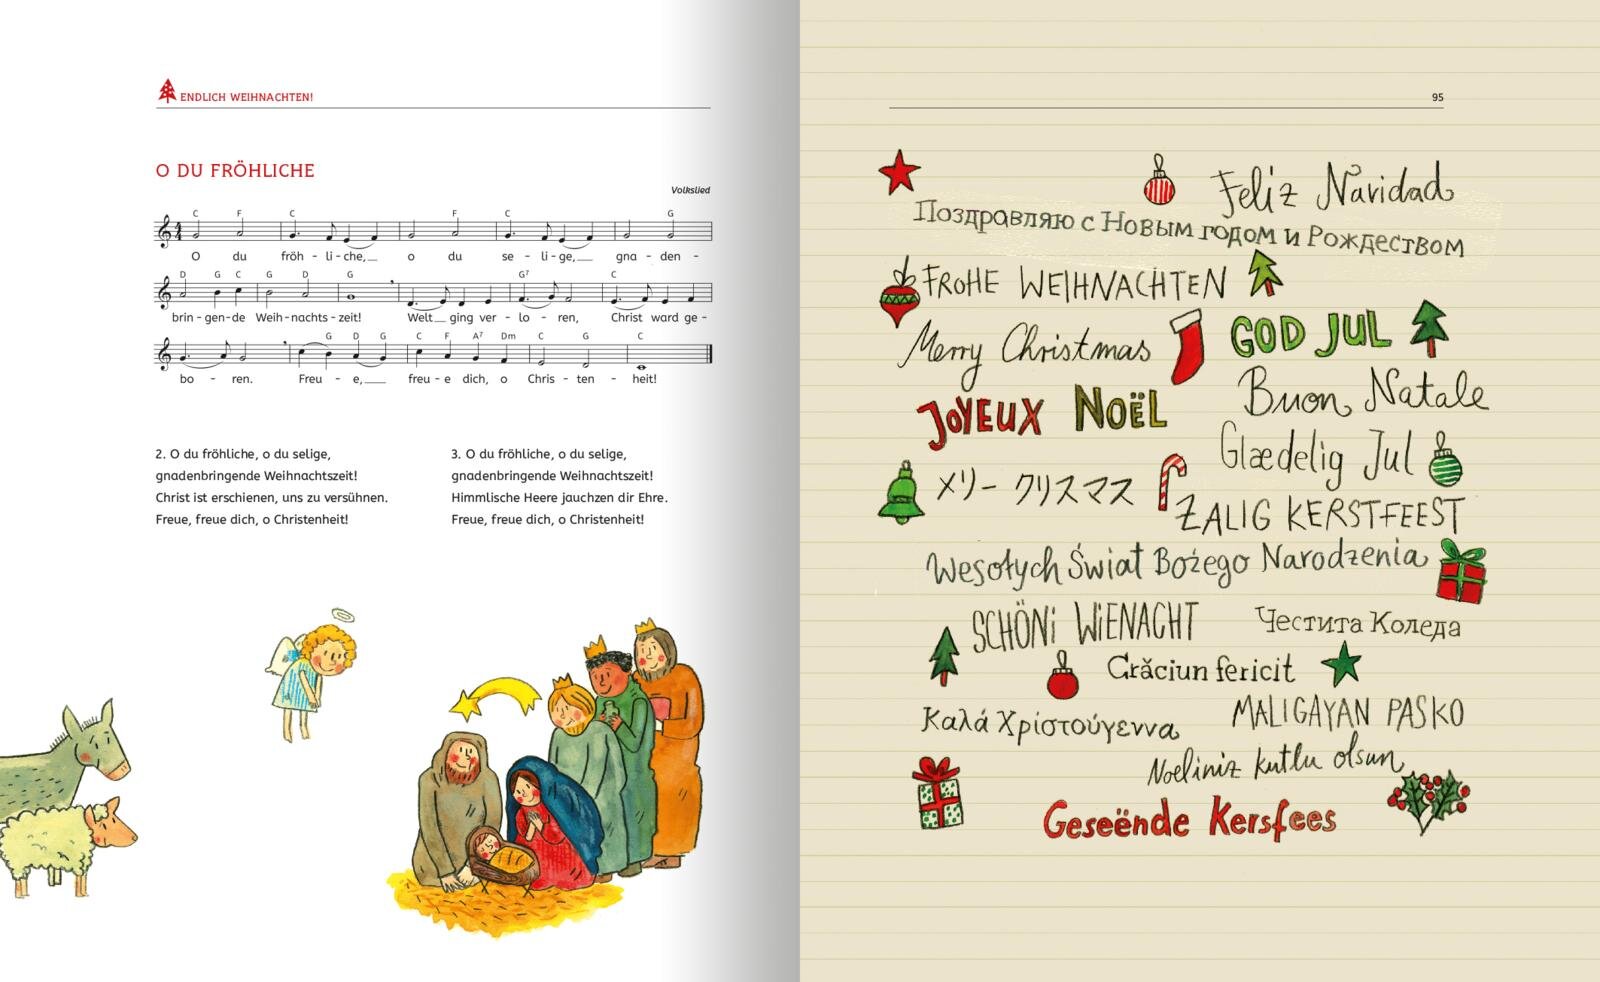 ENDLICH WEIHNACHTEN!
O DU FRÖHLICHE
Volkslied
C F C F C G
O du fröh - li - che, o du se - li - ge, gna - den -
D G C G D G G⁷ C
brin - gen - de Weih - nachts - zeit! Welt ging ver - lo - ren, Christ ward ge -
G D G C F A⁷ Dm C G C
bo - ren. Freu - e, freu - e dich, o Chris - ten - heit!
2. O du fröhliche, o du selige,
gnadenbringende Weihnachtszeit!
Christ ist erschienen, uns zu versühnen.
Freue, freue dich, o Christenheit!
3. O du fröhliche, o du selige,
gnadenbringende Weihnachtszeit!
Himmlische Heere jauchzen dir Ehre.
Freue, freue dich, o Christenheit!
95
Feliz Navidad
Поздравляю с Новым годом и Рождеством
FROHE WEIHNACHTEN
Merry Christmas
GOD JUL
JOYEUX NOËL
Buon Natale
Glædelig Jul
メリー クリスマス
ZALIG KERSTFEEST
Wesołych Świat Bożego Narodzenia
SCHÖNi WiENACHT
Честита Коледа
Crăciun fericit
Καλά Χρίστούγεννα
MALIGAYAN PASKO
Noeliniz kutlu olsun
Geseënde Kersfees